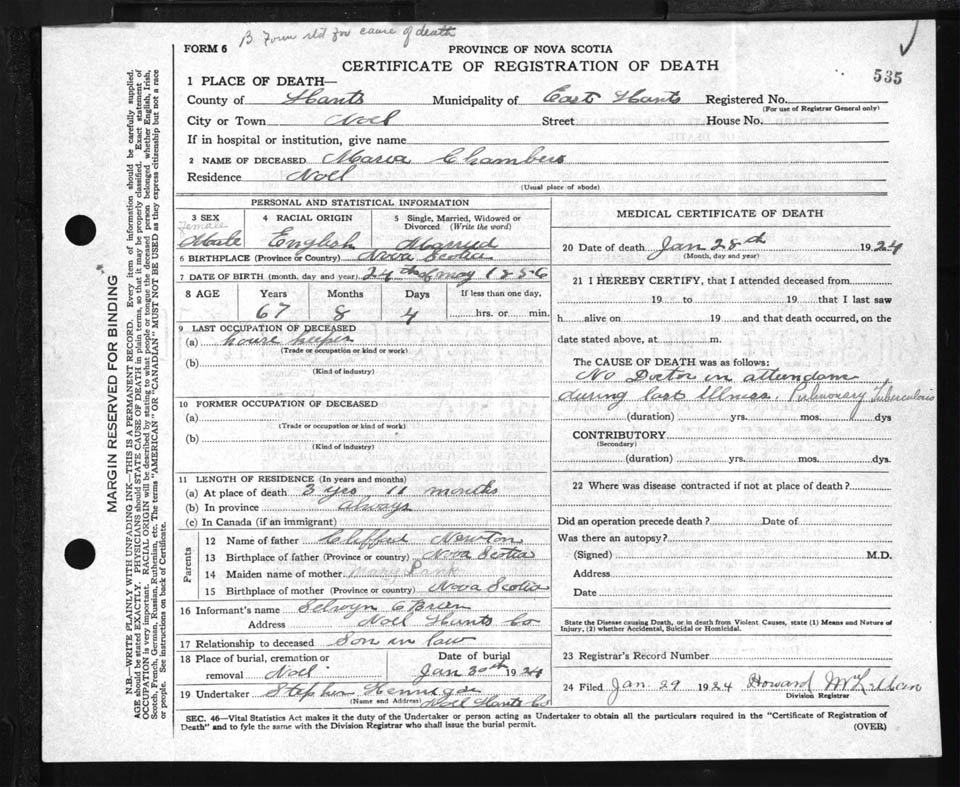 B Form std for cause of death
FORM 6
PROVINCE OF NOVA SCOTIA
CERTIFICATE OF REGISTRATION OF DEATH
535
1 PLACE OF DEATH—
County of Hants Municipality of East Hants Registered No.
(For use of Registrar General only)
City or Town Noel Street House No.
If in hospital or institution, give name
2 NAME OF DECEASED Maria Chambers
Residence Noel
(Usual place of abode)
PERSONAL AND STATISTICAL INFORMATION
3 SEX 4 RACIAL ORIGIN 5 Single, Married, Widowed or
Divorced (Write the word)
Female
Male English Married
6 BIRTHPLACE (Province or Country) Nova Scotia
7 DATE OF BIRTH (month, day and year) 24th of May 1856
8 AGE Years Months Days If less than one day,
67 8 4 hrs. or min.
9 LAST OCCUPATION OF DECEASED
(a) house keeper
(Trade or occupation or kind or work)
(b)
(Kind of industry)
10 FORMER OCCUPATION OF DECEASED
(a)
(Trade or occupation or kind of work)
(b)
(Kind of industry)
11 LENGTH OF RESIDENCE (In years and months)
(a) At place of death 3 yrs 11 months
(b) In province always
(c) In Canada (if an immigrant)
Parents
12 Name of father Clifford Newton
13 Birthplace of father (Province or country) Nova Scotia
14 Maiden name of mother Mary
15 Birthplace of mother (Province or country) Nova Scotia
16 Informant's name Selwyn O'Brien
Address Noel Hants Co
17 Relationship to deceased Son in law
18 Place of burial, cremation or Date of burial
removal Noel Jan 30th 1924
19 Undertaker Stephen
(Name and Address) Noel Hants Co
MEDICAL CERTIFICATE OF DEATH
20 Date of death Jan 28th 1924
(Month, day and year)
21 I HEREBY CERTIFY, that I attended deceased from
19 to 19 that I last saw
h alive on 19 and that death occurred, on the
date stated above, at m.
The CAUSE OF DEATH was as follows:
No Doctor in attendance
during last Illness. Pulmonary Tuberculosis
(duration) yrs. mos. dys
CONTRIBUTORY
(Secondary)
(duration) yrs. mos. dys.
22 Where was disease contracted if not at place of death?
Did an operation precede death? Date of
Was there an autopsy?
(Signed) M.D.
Address
Date
State the Disease causing Death, or in death from Violent Causes, state (1) Means and Nature of
Injury, (2) whether Accidental, Suicidal or Homicidal.
23 Registrar's Record Number
24 Filed Jan 29 1924 Howard
Division Registrar
SEC. 46—Vital Statistics Act makes it the duty of the Undertaker or person acting as Undertaker to obtain all the particulars required in the "Certificate of Registration of
Death" and to fyle the same with the Division Registrar who shall issue the burial permit. (OVER)
MARGIN RESERVED FOR BINDING
N.B.—WRITE PLAINLY WITH UNFADING INK—THIS IS A PERMANENT RECORD. Every item of information should be carefully supplied.
AGE should be stated EXACTLY. PHYSICIANS should STATE CAUSE OF DEATH in plain terms, so that it may be properly classified. Exact statement of
OCCUPATION is very important. RACIAL ORIGIN will be described by stating to what people or tongue the deceased person belonged whether English, Irish,
Scotch, French, German, Russian, Ruthenian, etc. The terms "AMERICAN" OR "CANADIAN" MUST NOT BE USED as they express citizenship but not a race
or people. See instructions on back of Certificate.